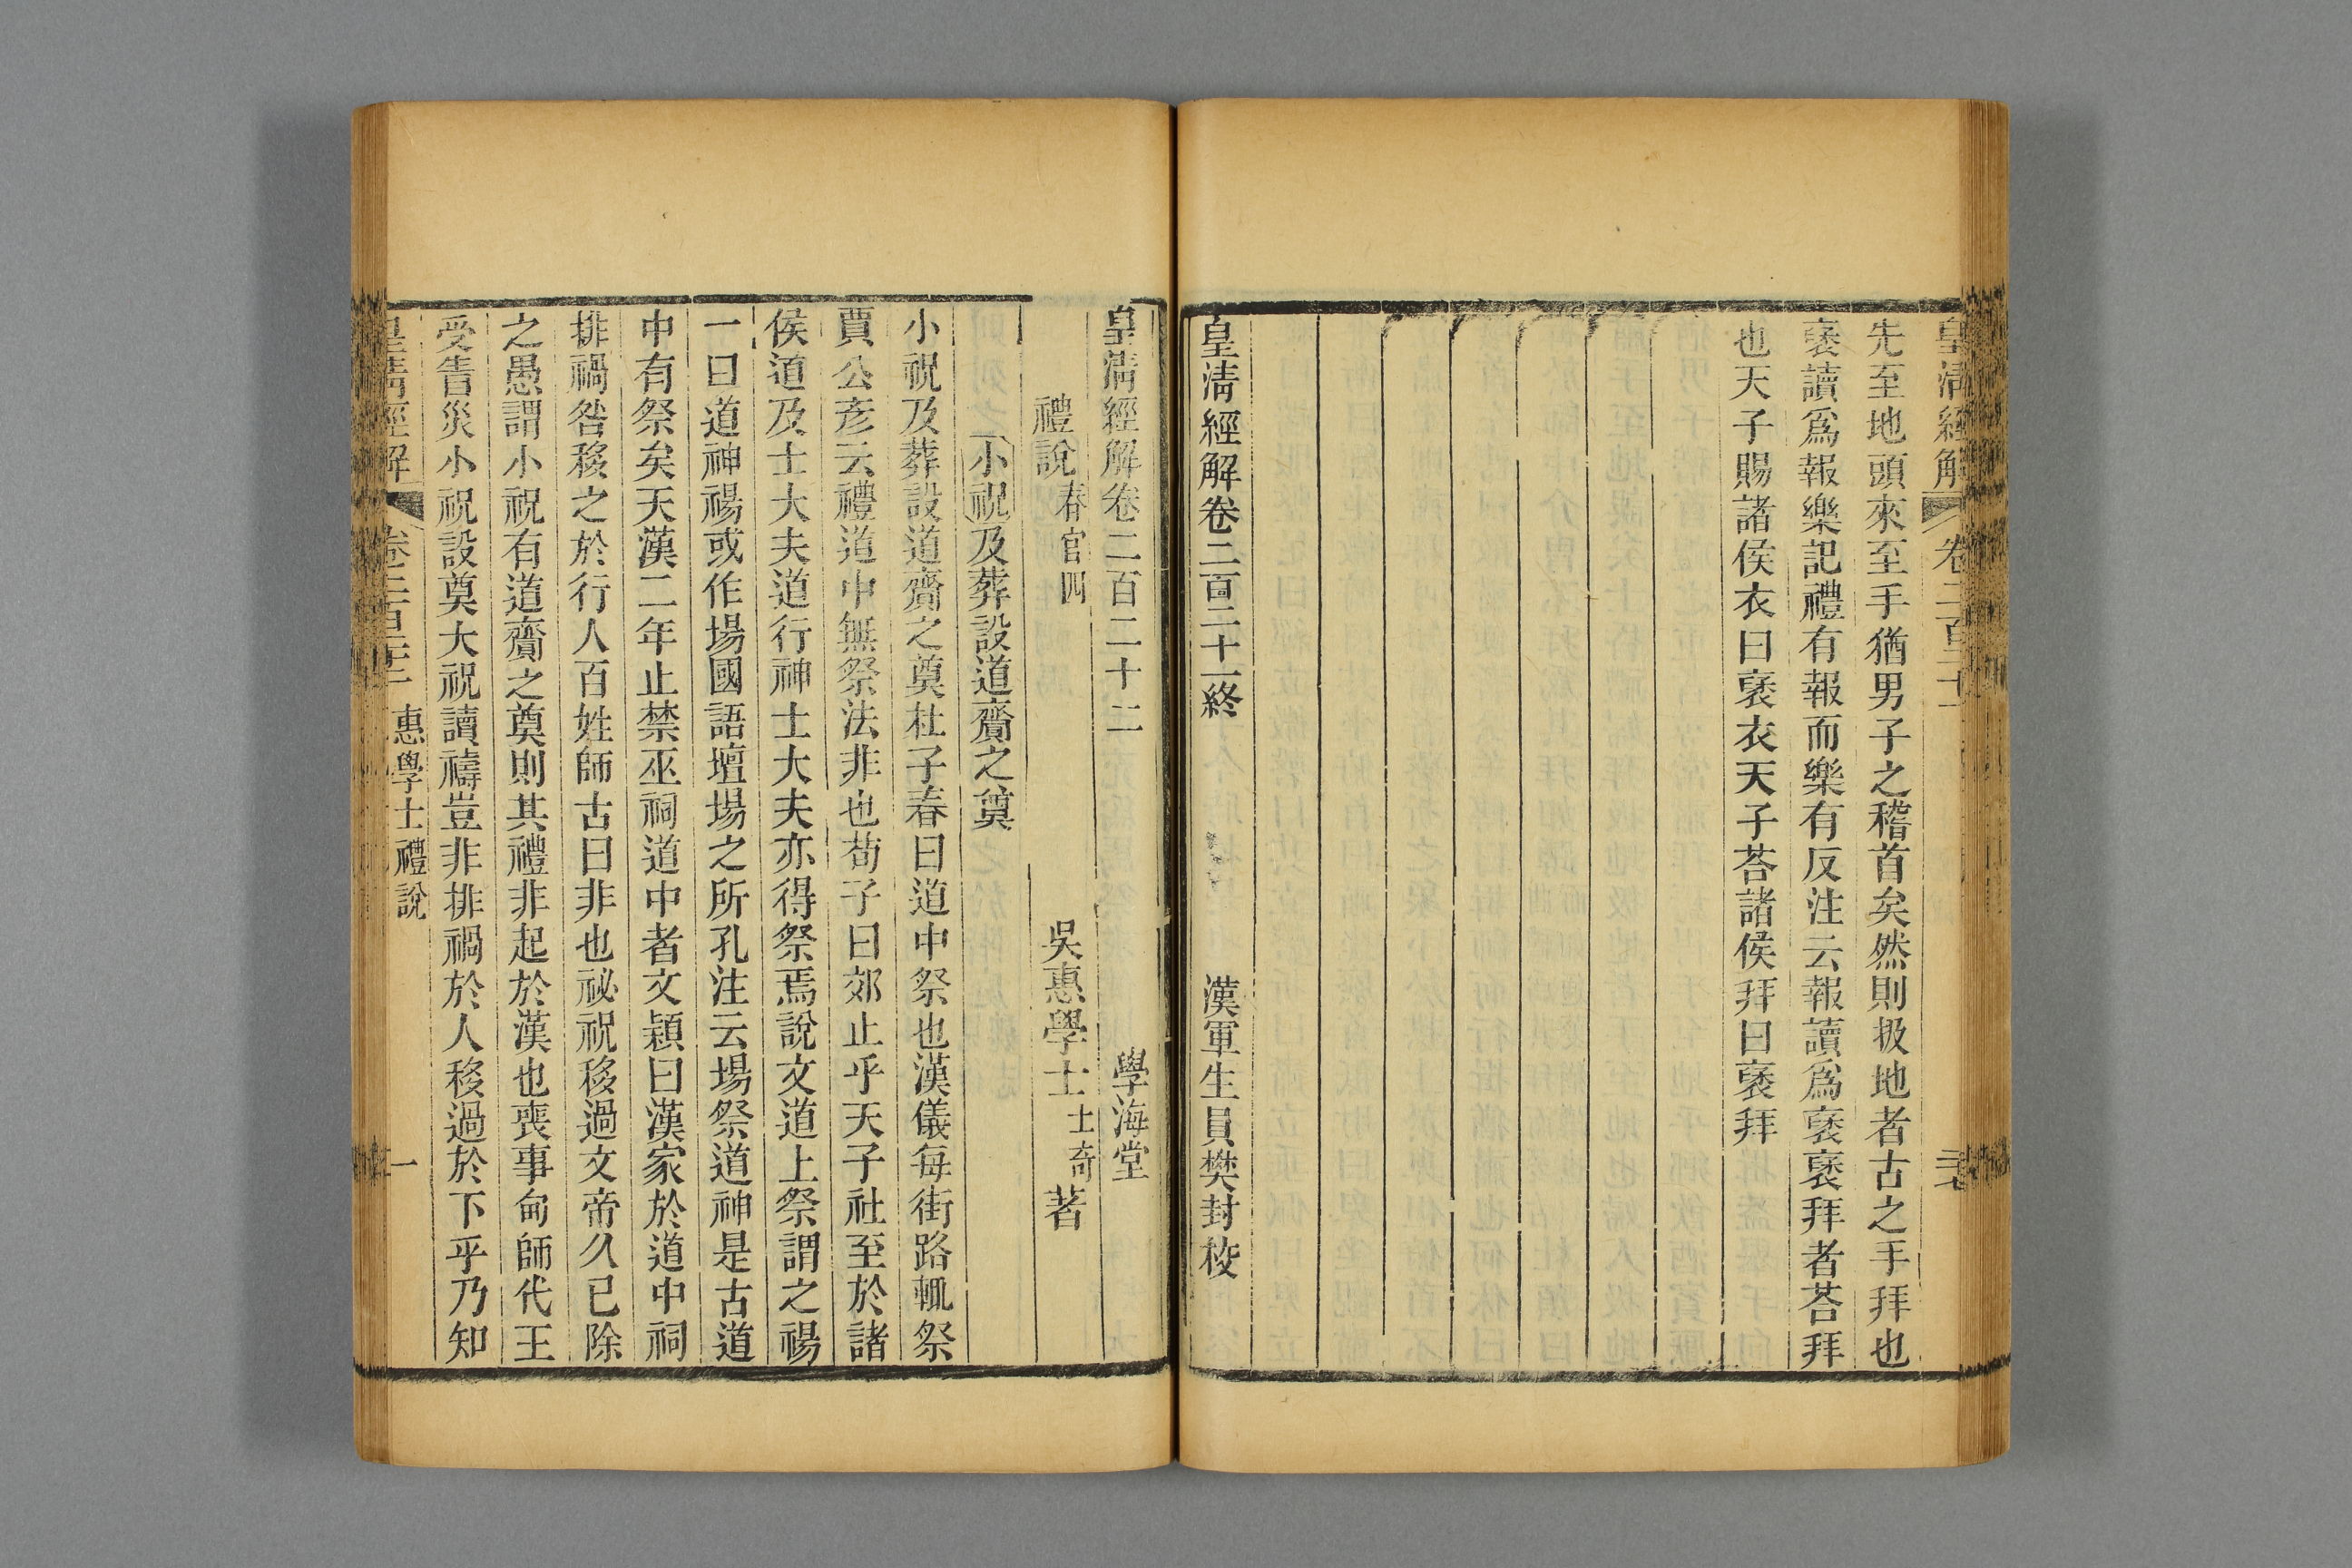 皇清經解 卷二百二十一
先至地頭來至手猶男子之稽首矣然則扱地者古之手拜也
褒讀爲報樂記禮有報而樂有反注云報讀爲褒褒拜者荅拜
也天子賜諸侯衣曰褒衣天子荅諸侯拜曰褒拜
皇淸經解卷二百二十一終 漢軍生員樊封校
皇淸經解卷二百二十二 學海堂
禮說春官四 吳惠學士士奇著
小祝及葬設道齎之奠
小祝及葬設道齎之奠杜子春曰道中祭也漢儀每街路輒祭
賈公彥云禮道中無祭法非也荀子曰郊止乎天子社至於諸
侯道及士大夫道行神士大夫亦得祭焉說文道上祭謂之禓
一曰道神禓或作場國語壇場之所孔注云場祭道神是古道
中有祭矣天漢二年止禁巫祠道中者文穎曰漢家於道中祠
排禍咎移之於行人百姓師古曰非也祕祝移過文帝久已除
之愚謂小祝有道齎之奠則其禮非起於漢也喪事甸師代王
受眚災小祝設奠大祝讀禱豈非排禍於人移過於下乎乃知
皇淸經解 卷二百二十二 惠學士禮說 一